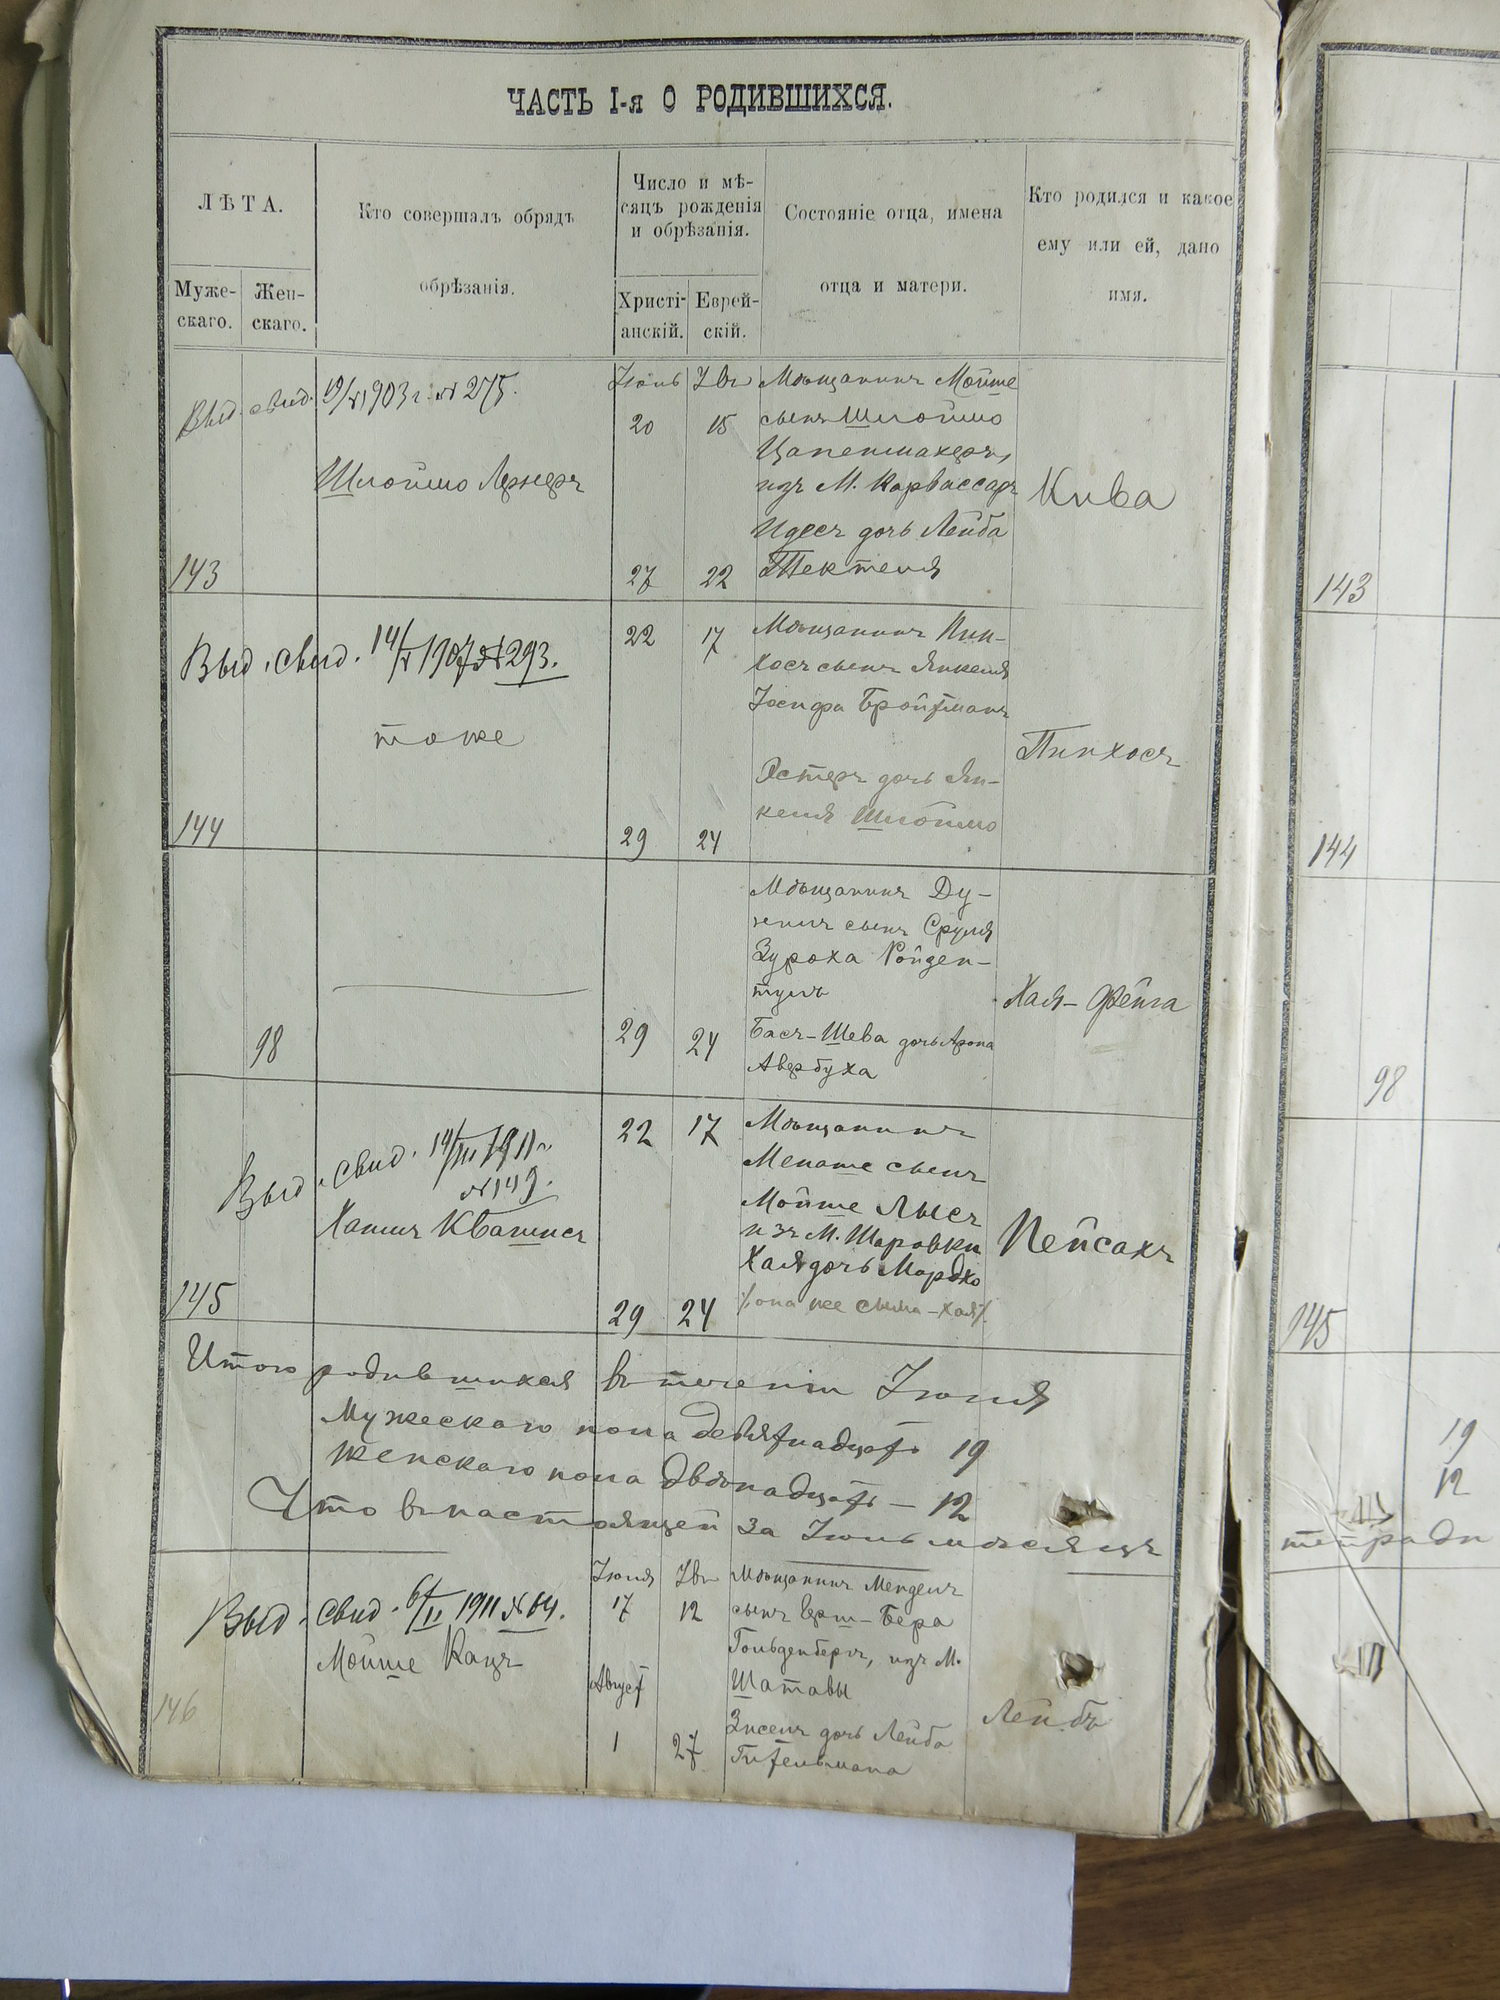 ЧАСТЬ I-я О РОДИВШИХСЯ.
ЛѢТА.
Муже-
скаго.
Жен-
скаго.
Кто совершалъ обрядъ
обрѣзанія.
Число и мѣ-
сяцъ рожденія
и обрѣзанія.
Христі-
анскій.
Еврей-
скій.
Состояніе отца, имена
отца и матери.
Кто родился и какое
ему или ей, дано
имя.
Выд. свид. 19/VI 903 г. № 275.
Шлоймо Лернеръ
143
Іюнь
20
15
27
22
Мѣщанинъ Мойше
сынъ Шлоймо
Цапенмахеръ,
изъ М. Карвассаръ
Идесъ дочь Лейба
Кива
143
Выд. свид. 14/V 1907 № 293.
тоже
144
22
17
29
24
Мѣщанинъ Пин-
хосъ сынъ Янкеля
Іосифа Бройтманъ
Эстеръ дочь Ян-
келя Шлоймо
Пинхосъ
144
98
29
24
Мѣщанинъ Ду-
сынъ Сруля
Зуроха Ройден-
Бася-Шева дочь Арона
Авербуха
Хая-Фейга
98
Выд. свид. 14/III 1911 г.
№ 149.
Хаимъ Квашисъ
145
22
17
29
24
Мѣщанинъ
Менаше сынъ
Мойше Лысъ
изъ М. Шаровки
Хая дочь Мордко
/она же Сыма-Хая/.
Пейсахъ
145
Итого родившихся въ теченіи Іюня
Мужескаго пола девятнадцать 19
Женскаго пола двѣнадцать — 12
Что въ настоящей за Іюнь мѣсяцъ
19
12
тетради
Выд. свид. 6/II 1911 № 64.
Мойше Кацъ
146
Іюля
17
12
Август
1
27
Мѣщанинъ Мендель
сынъ Герш-Бера
Гольденбергъ, изъ М.
Шатавы
Зисель дочь Лейба
Гительмана
Лейбъ